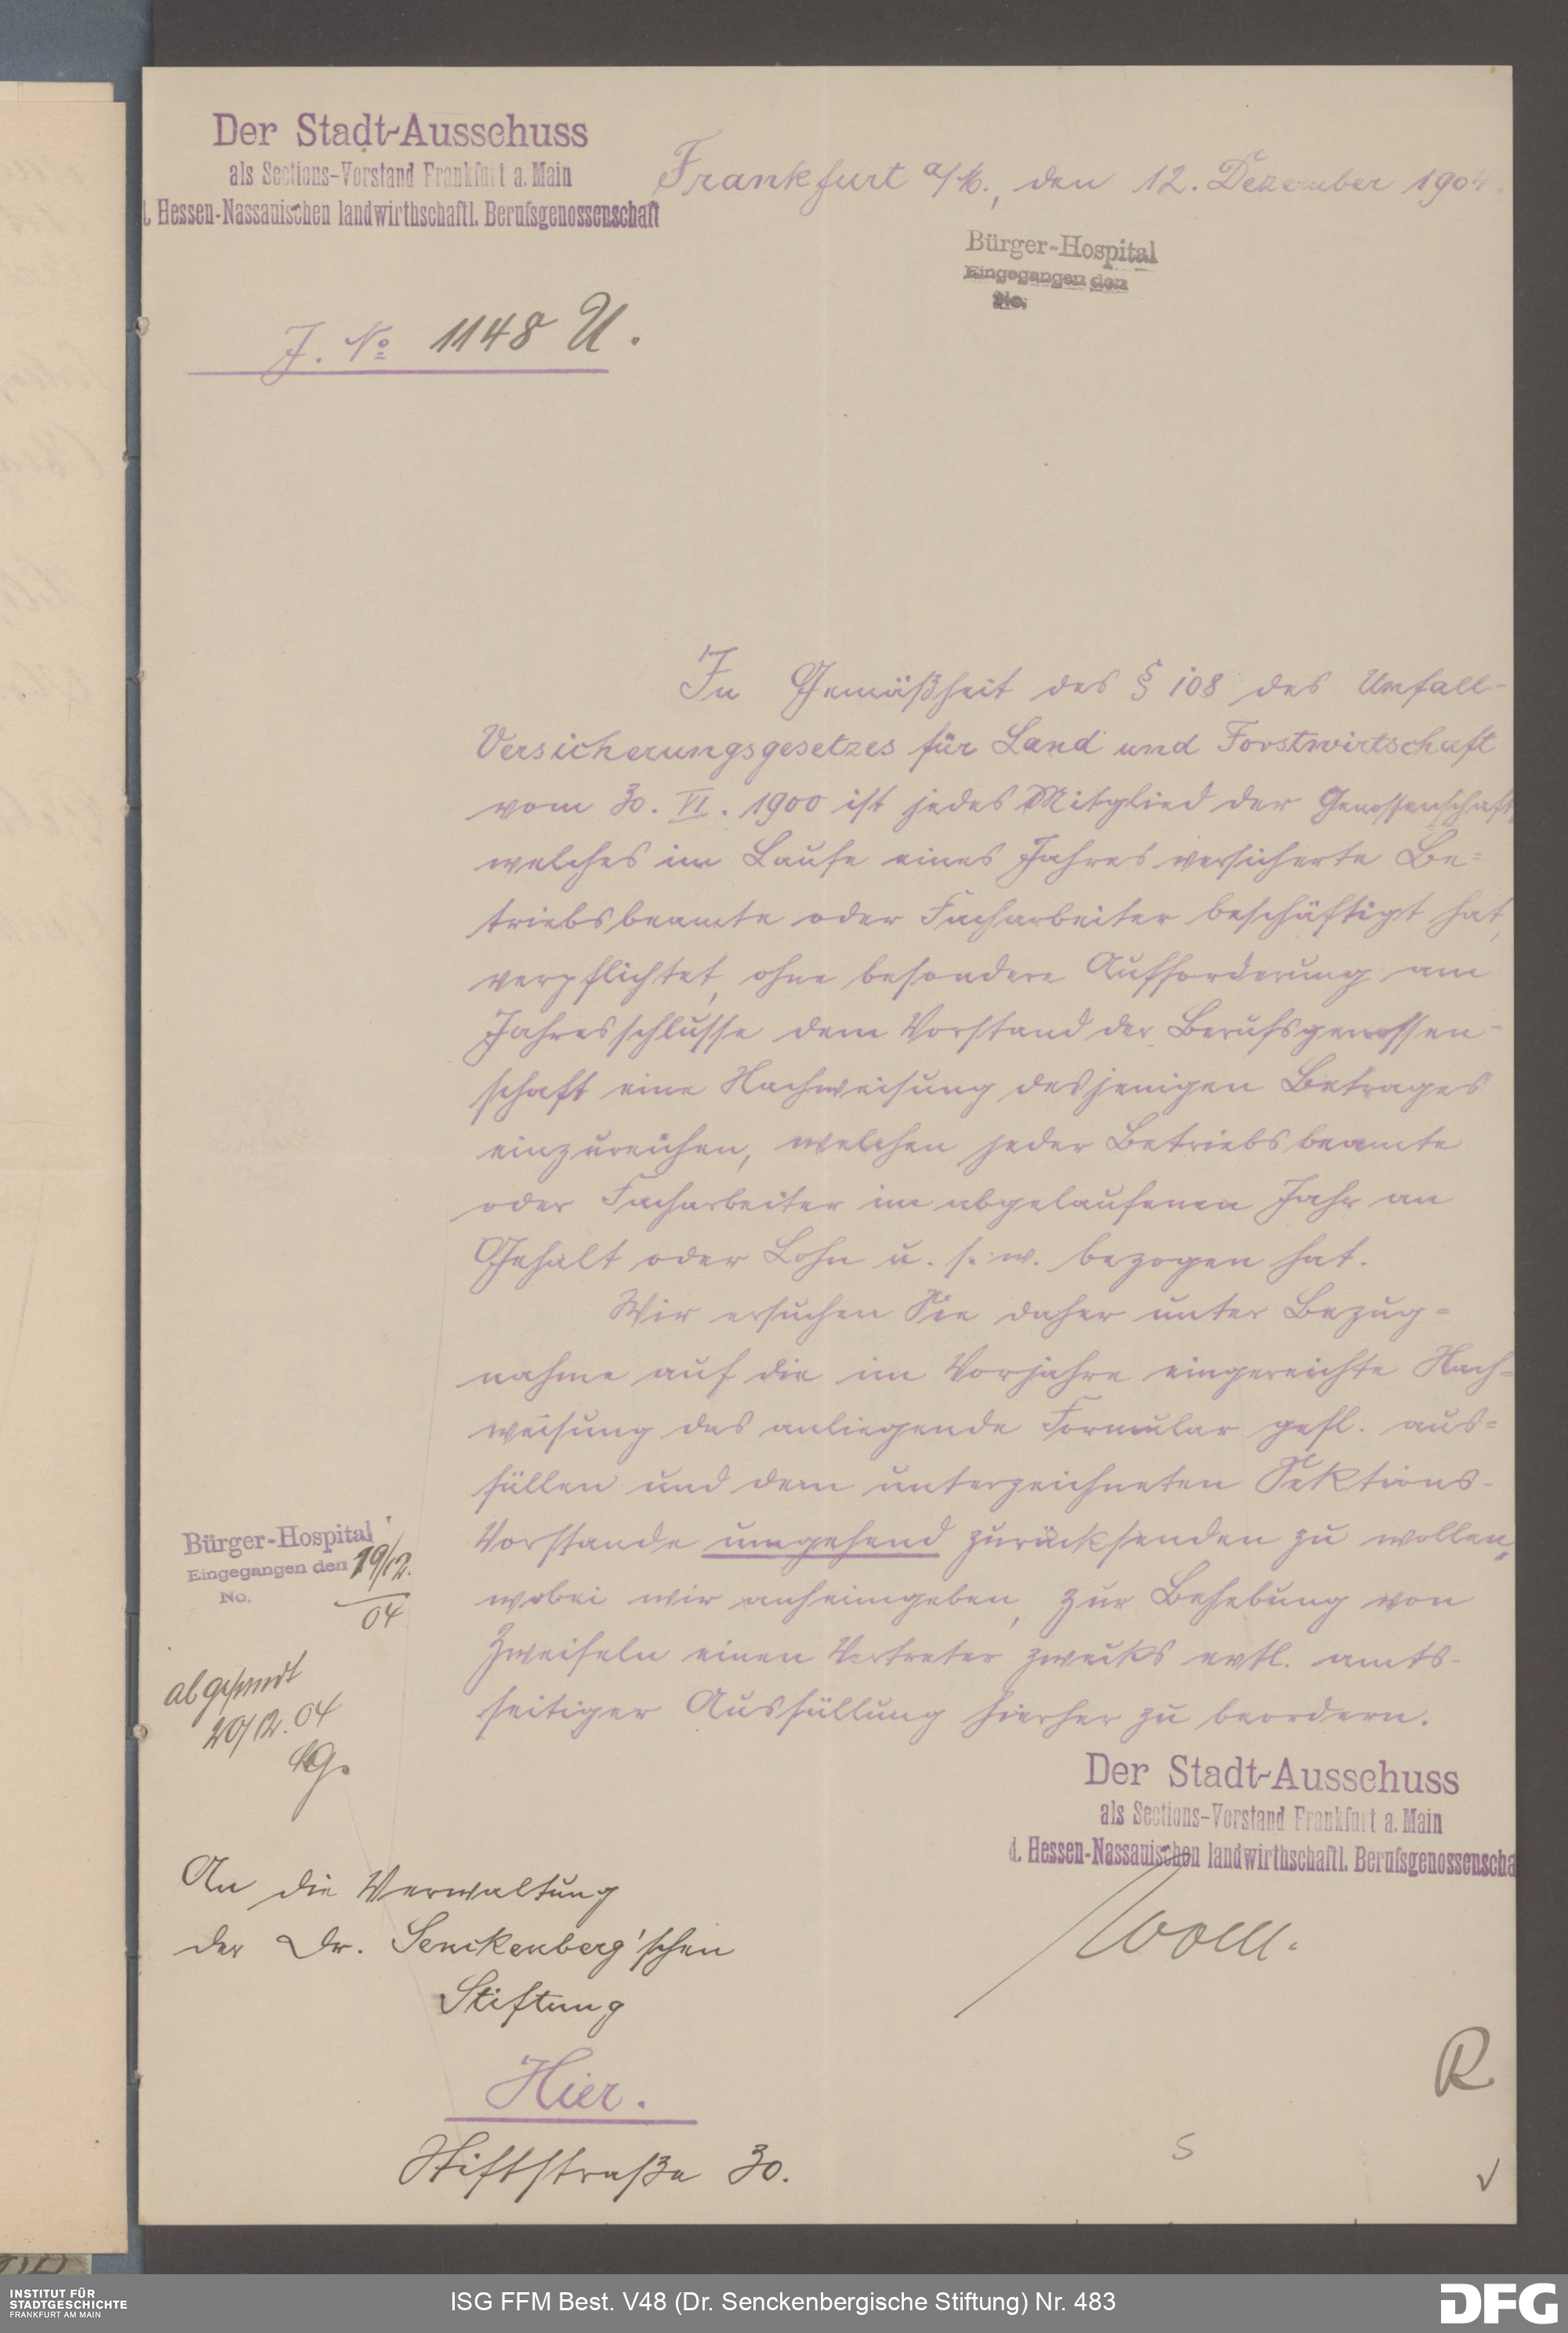 Der Stadt-Ausschuss
als Sections-Vorstand Frankfurt a. Main
d. Hessen-Nassauischen landwirthschaftl. Berufsgenossenschaft
Frankfurt a/M., den 12. Dezember 1904.
Bürger-Hospital
Eingegangen den
No.
J. No 1148 U.
In Gemäßheit des § 108 des Unfall-
Versicherungsgesetzes für Land und Forstwirtschaft
vom 30. VI. 1900 ist jedes Mitglied der Genossenschaft,
welches im Laufe eines Jahres versicherte Be=
triebsbeamte oder Facharbeiter beschäftigt hat,
verpflichtet, ohne besondere Aufforderung am
Jahresschlusse dem Vorstand der Berufsgenossen-
schaft eine Nachweisung desjenigen Betrages
einzureichen, welchen jeder Betriebsbeamte
oder Facharbeiter im abgelaufenen Jahr an
Gehalt oder Lohn u. s. w. bezogen hat.
Wir ersuchen Sie daher unter Bezug=
nahme auf die im Vorjahre eingereichte Nach=
weisung das anliegende Formular gefl. aus=
füllen und dem unterzeichneten Sektions-
Vorstande umgehend zurücksenden zu wollen,
wobei wir anheimgeben, zur Behebung von
Zweifeln einen Vertreter zwecks evtl. amts-
seitiger Ausfüllung hierher zu beordern.
Bürger-Hospital
Eingegangen den 19/12.
No.
04
abgesandt
20/12. 04
Der Stadt-Ausschuss
als Sections-Vorstand Frankfurt a. Main
d. Hessen-Nassauischen landwirthschaftl. Berufsgenossenscha
An die Verwaltung
der Dr. Senckenberg'schen
Stiftung
Hier.
Stiftstraße 30.
R
S
INSTITUT FÜR
STADTGESCHICHTE
FRANKFURT AM MAIN
ISG FFM Best. V48 (Dr. Senckenbergische Stiftung) Nr. 483
DFG